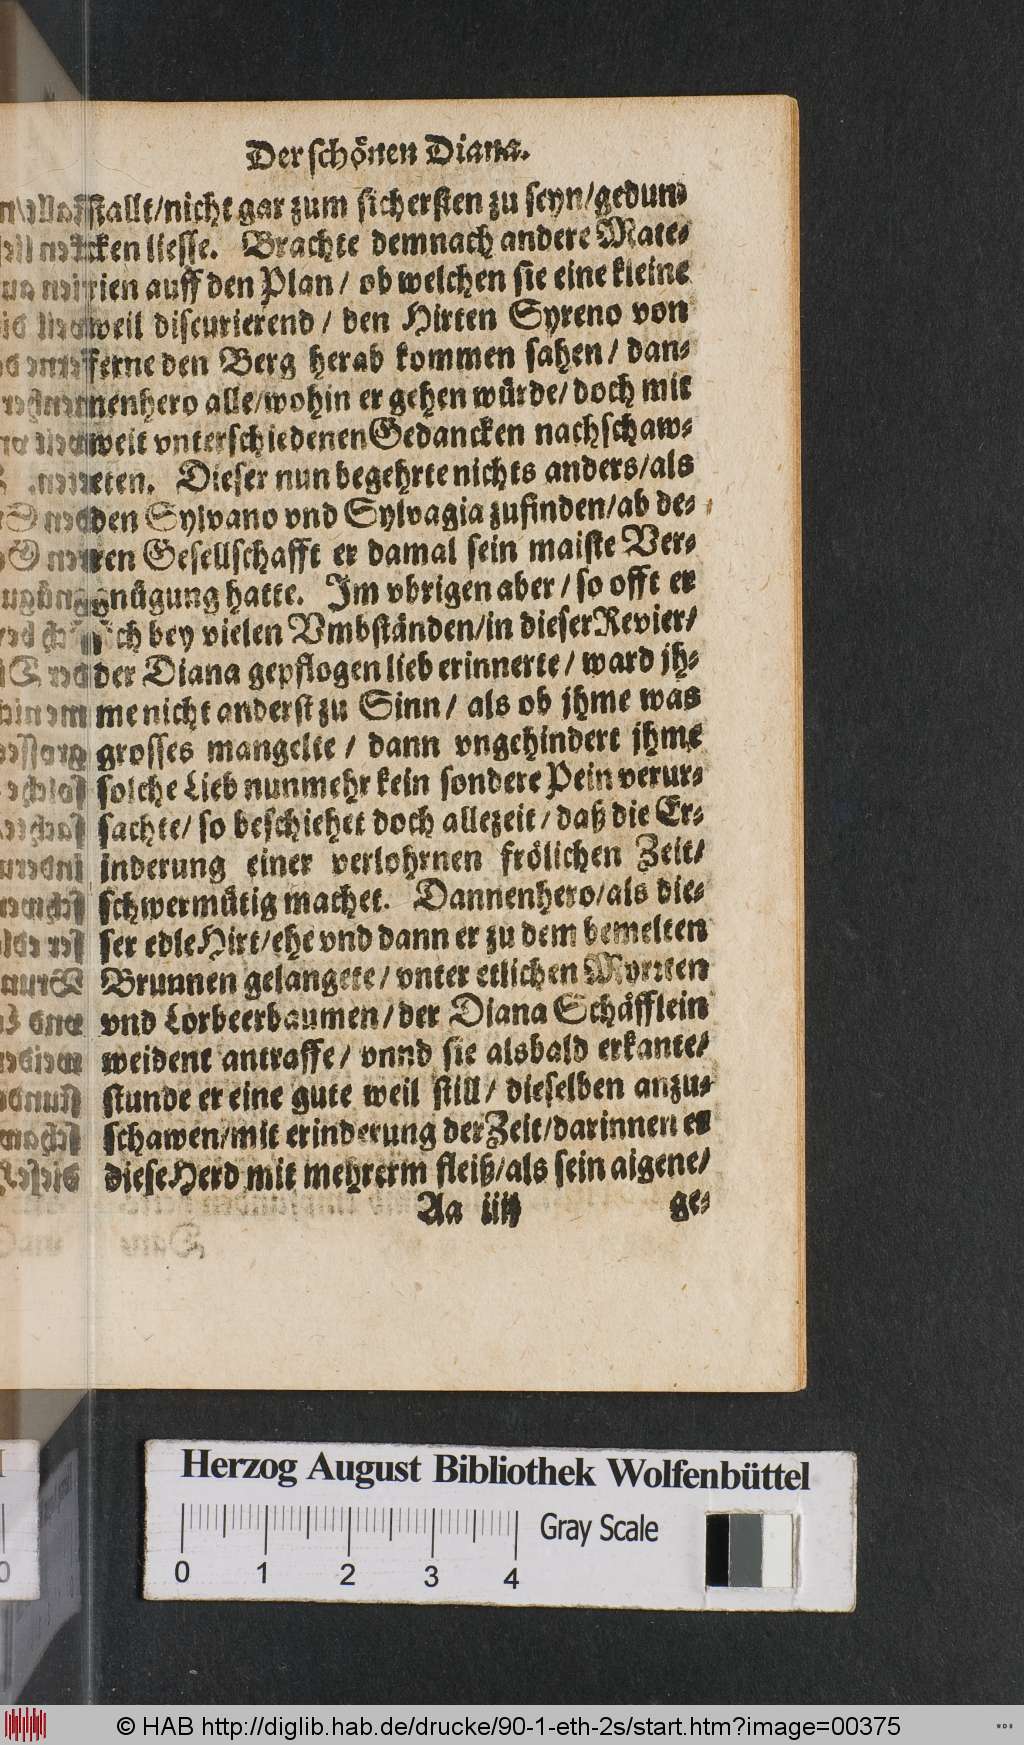 Der schönen Diana.
stallt/nicht gar zum sichersten zu seyn/gedun-
cken liesse. Brachte demnach andere Mate-
rien auff den Plan/ ob welchen sie eine kleine
weil discurierend/ den Hirten Syreno von
ferne den Berg herab kommen sahen/ dan-
nenhero alle/wohin er gehen würde/ doch mit
weit vnterschiedenen Gedancken nachschaw-
eten. Dieser nun begehrte nichts anders/als
den Sylvano vnd Sylvagia zufinden/ab de-
ren Gesellschafft er damal sein maiste Ver-
gnügung hatte. Im vbrigen aber/ so offt er
sich bey vielen Vmbständen/in dieser Revier/
der Diana gepflogen lieb erinnerte/ ward jh-
me nicht anderst zu Sinn/ als ob jhme was
grosses mangelte/ dann vngehindert jhme
solche Lieb nunmehr kein sondere Pein verur-
sachte/ so beschiehet doch allezeit/ daß die Er-
inderung einer verlohrnen frölichen Zeit/
schwermütig machet. Dannenhero/als die-
ser edle Hirt/ehe vnd dann er zu dem bemelten
Brunnen gelangete/ vnter etlichen Myrzten
vnd Lorbeerbaumen/der Diana Schäfflein
weident antraffe/ vnnd sie alsbald erkante/
stunde er eine gute weil still/ dieselben anzu-
schawen/mit erinderung der Zeit/darinnen er
diese Herd mit mehrerm fleiß/als sein aigene/
Aa iiij ge-
Herzog August Bibliothek Wolfenbüttel
0 1 2 3 4 Gray Scale
© HAB http://diglib.hab.de/drucke/90-1-eth-2s/start.htm?image=00375